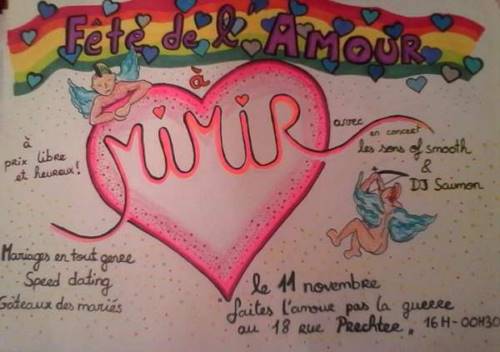 Fête de l'AMOUR
à
MiMiR
à
prix libre
et heureux!
avec
en concert
les sons of smooth
&
DJ Saumon
Mariages en tout genre
Speed dating
Gâteaux des mariés
le 11 novembre
"faites l'amour pas la guerre
au 18 rue Prechter" 16H-00H30